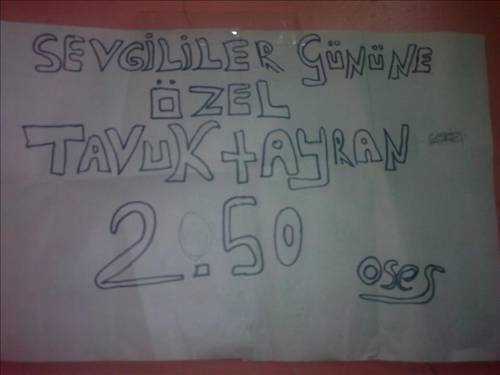 SEVGİLİLER GÜNÜNE
ÖZEL
TAVUK + AYRAN
2.50
oses